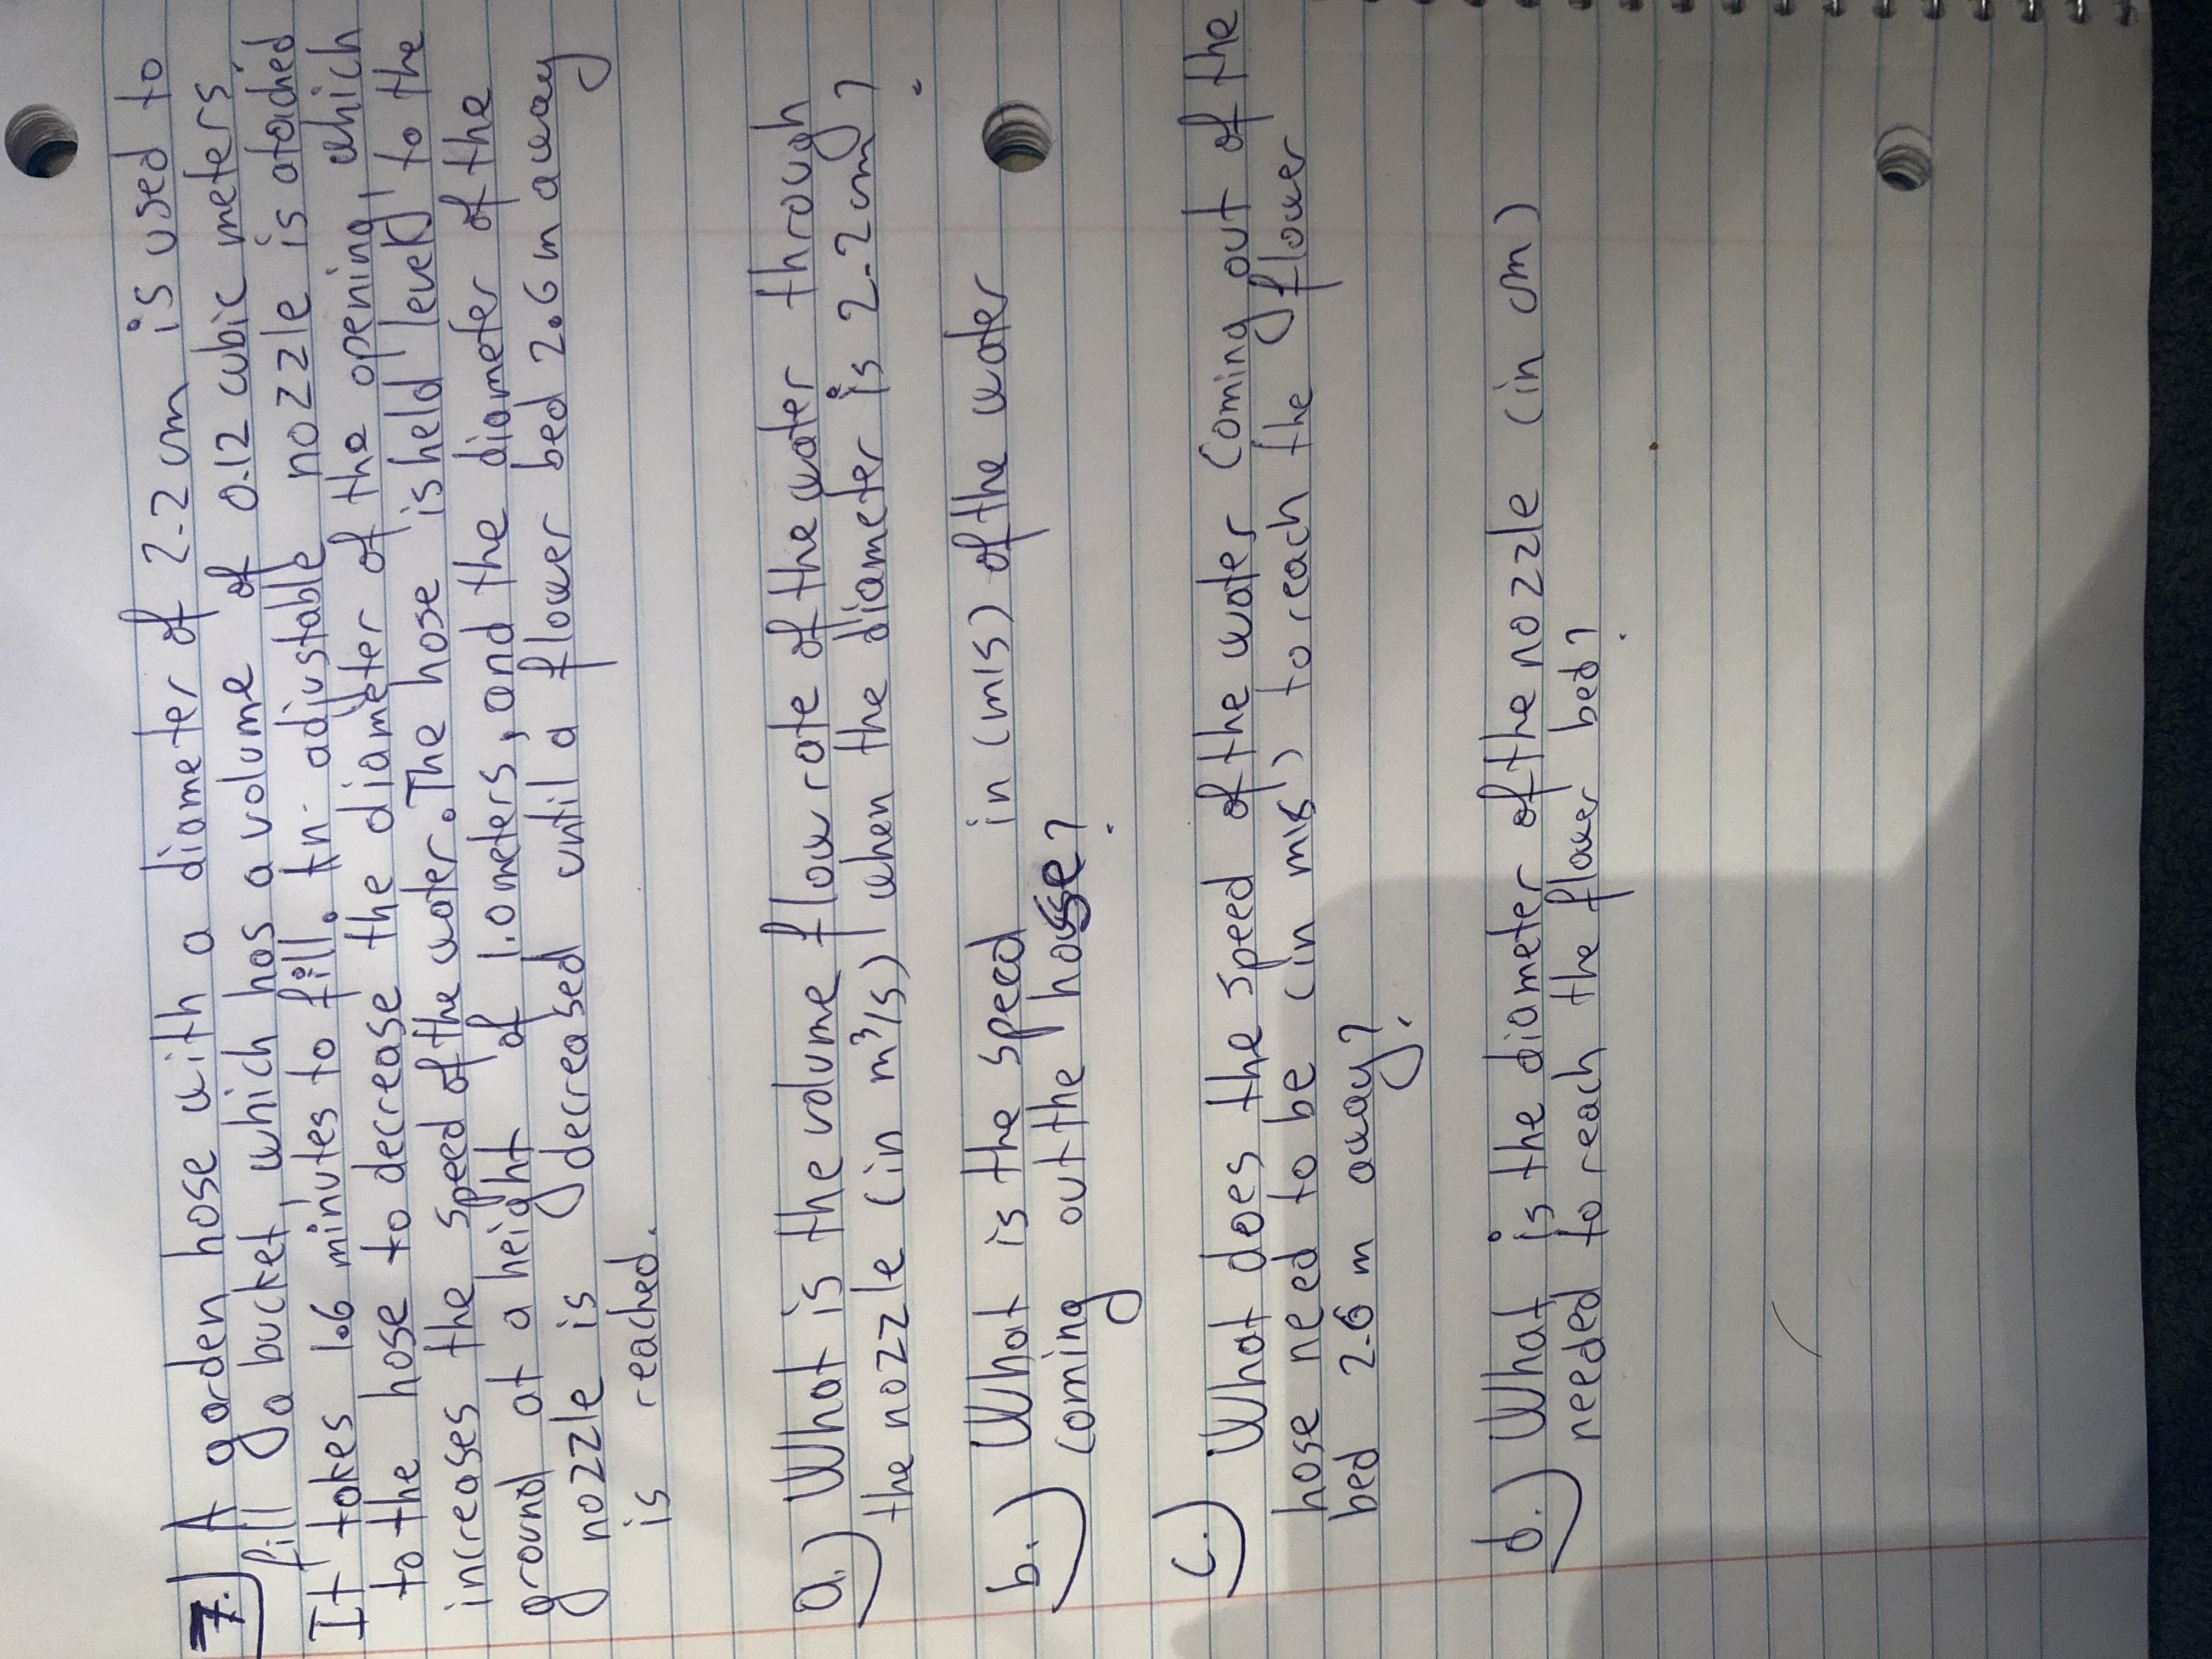 7.) A garden hose with a diameter of 2.2 cm is used to
fill a bucket, which has a volume of 0.12 cubic meters.
It takes 1.6 minutes to fill. An adjustable nozzle is atached
to the hose to decrease the diameter of the opening, which
increases the speed of the water. The hose is held level to the
ground at a height of 1.0 meters, and the diameter of the
nozzle is decreased until a flower bed 2.6 m away
is reached.
a.) What is the volume flow rate of the water through
the nozzle (in m³/s) when the diameter is 2.2 cm?
b.) What is the speed in (m/s) of the water
coming out the hose?
c.) What does the speed of the water coming out of the
hose need to be (in m/s) to reach the flower
bed 2.6 m away?
d.) What is the diameter of the nozzle (in cm)
needed to reach the flower bed?